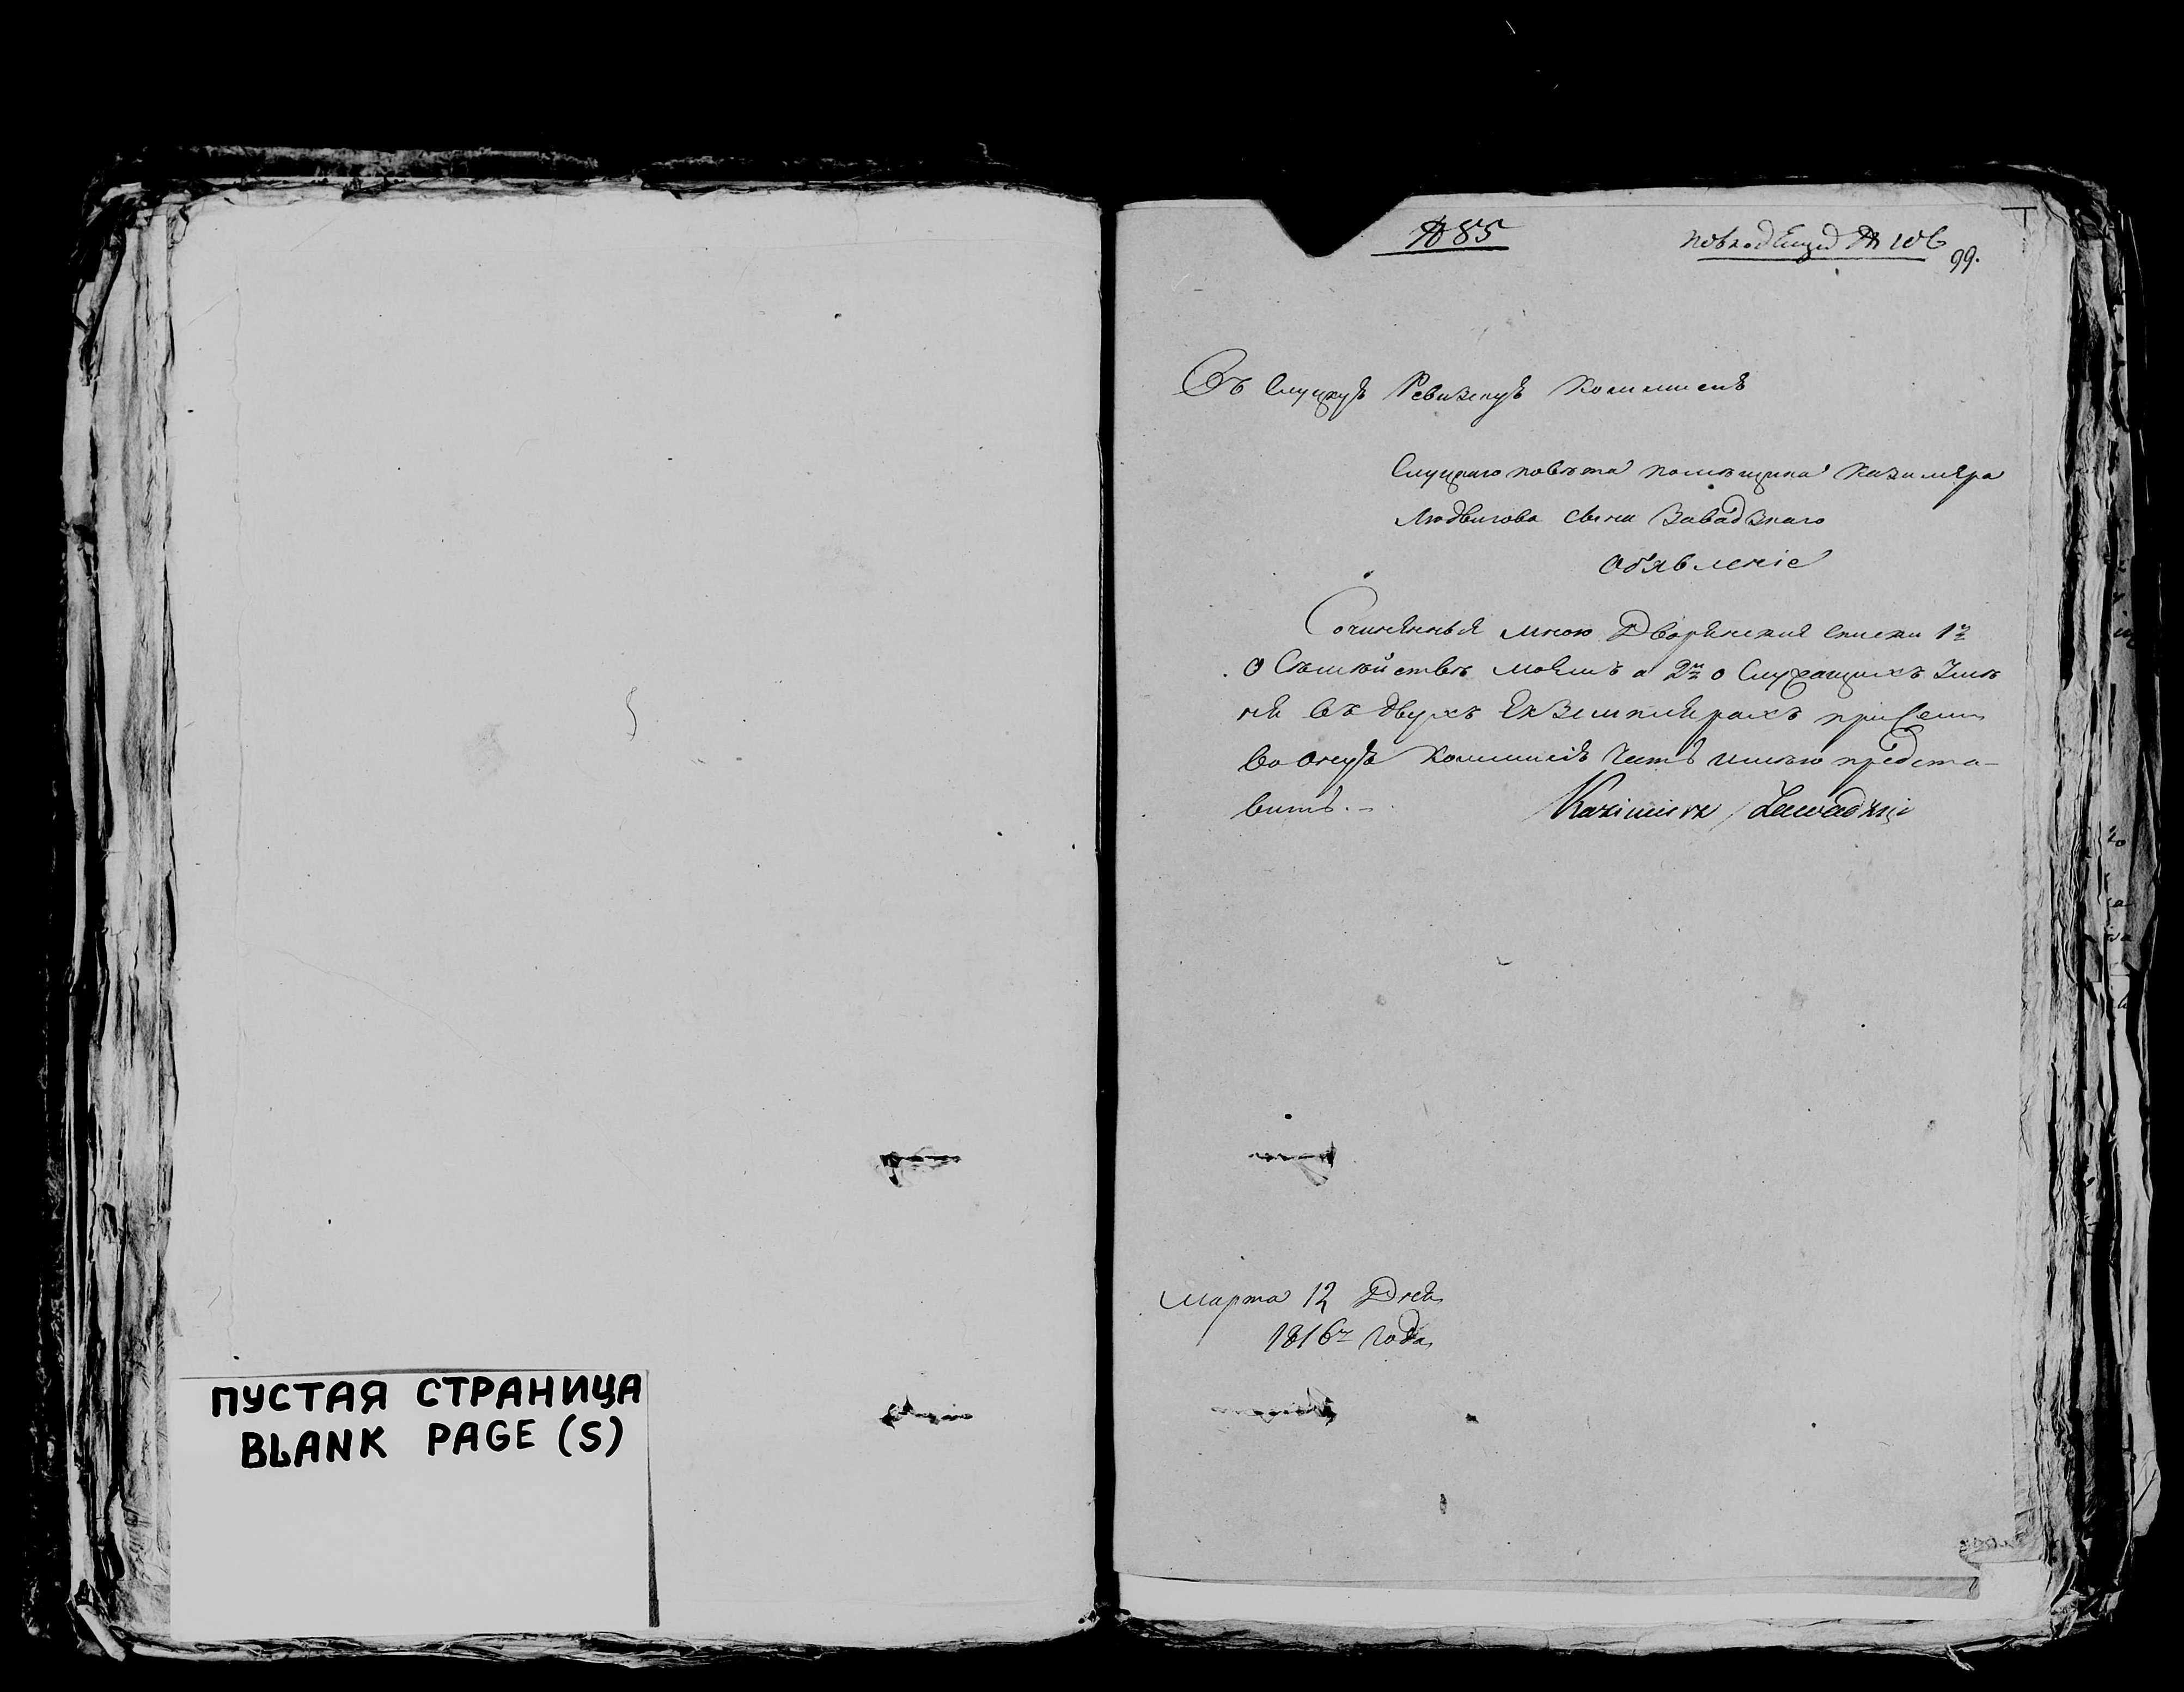 ПУСТАЯ СТРАНИЦА
BLANK PAGE (S)
№ 85
по входящей № 106
99.
Въ Слуцкую Ревизкую Коммисию
Слуцкаго повѣта помѣщика Казимера
Людвигова сына Завадзкаго
Обявленіе
Сочиненныя мною Дворянския списки 1й
о Сѣмѣйствѣ моемъ а 2й о Служащихъ Имѣ
ния въ двухъ Екземплярахъ при семъ
во оную Коммисию честь имѣю предста-
вить. –
Kazimierz Zawadzki
Марта 12 Дня
1816го Года